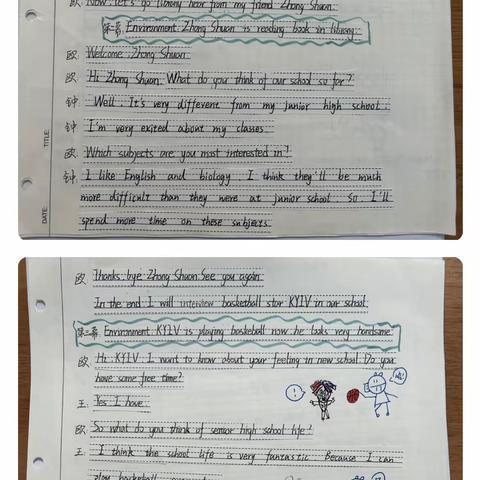 欧: Now. Let's go library hear from my friend Zhong Shuan.
第二幕 Environment: Zhong Shuan is reading book in library.
欧: Welcome, Zhong Shuan.
欧: Hi Zhong Shuan. What do you think of our school so far?
钟: Well. It's very different from my junior high school.
钟: I'm very exited about my classes.
欧: Which subjects are you most interested in?
钟: I like English and biology I think they'll be much
more difficult than they were at junior school. So I'll
spend more time on these subjects.
TITLE:
DATE:
欧: Thanks. bye Zhong Shuan. See you again.
In the end I will interview basketball star KYIV in our school.
第三幕 Environment: KYIV is playing basketball now he looks very handsome.
欧: Hi. KYIV. I want to know about your feeling in new school. Do you
have some free time?
王: Yes I have.
欧: So what do you think of senior high school life?
王: I think the school life is very fantastic Because I can
play basketball